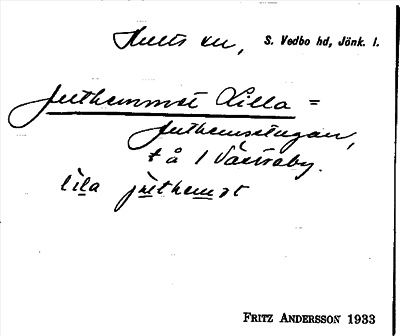 Hults sn, S. Vedbo hd, Jönk. l.
Juthemmet Lilla =
Juthemsstugan,
t å / Västraby.
lila juthemət
FRITZ ANDERSSON 1933